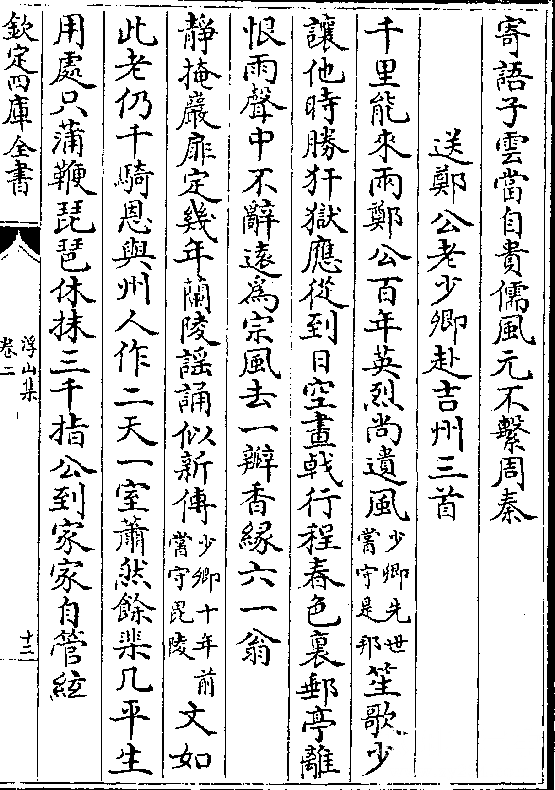 寄語子雲當自貴儒風元不繫周秦
送鄭公老少卿赴吉州三首
千里能來雨鄭公百年英烈尚遺風少卿先世嘗守是邦笙歌少
讓他時勝犴獄應從到日空畫戟行程春色裏郵亭離
恨雨聲中不辭遠爲宗風去一瓣香緣六一翁
靜掩巖扉定幾年蘭陵謡誦似新傳少卿十年前嘗守毘陵文如
此老仍千騎恩與州人作二天一室蕭然餘棐几平生
用處只蒲鞭琵琶休抹三千指公到家家自管絃
欽定四庫全書
浮山集
卷二
十三